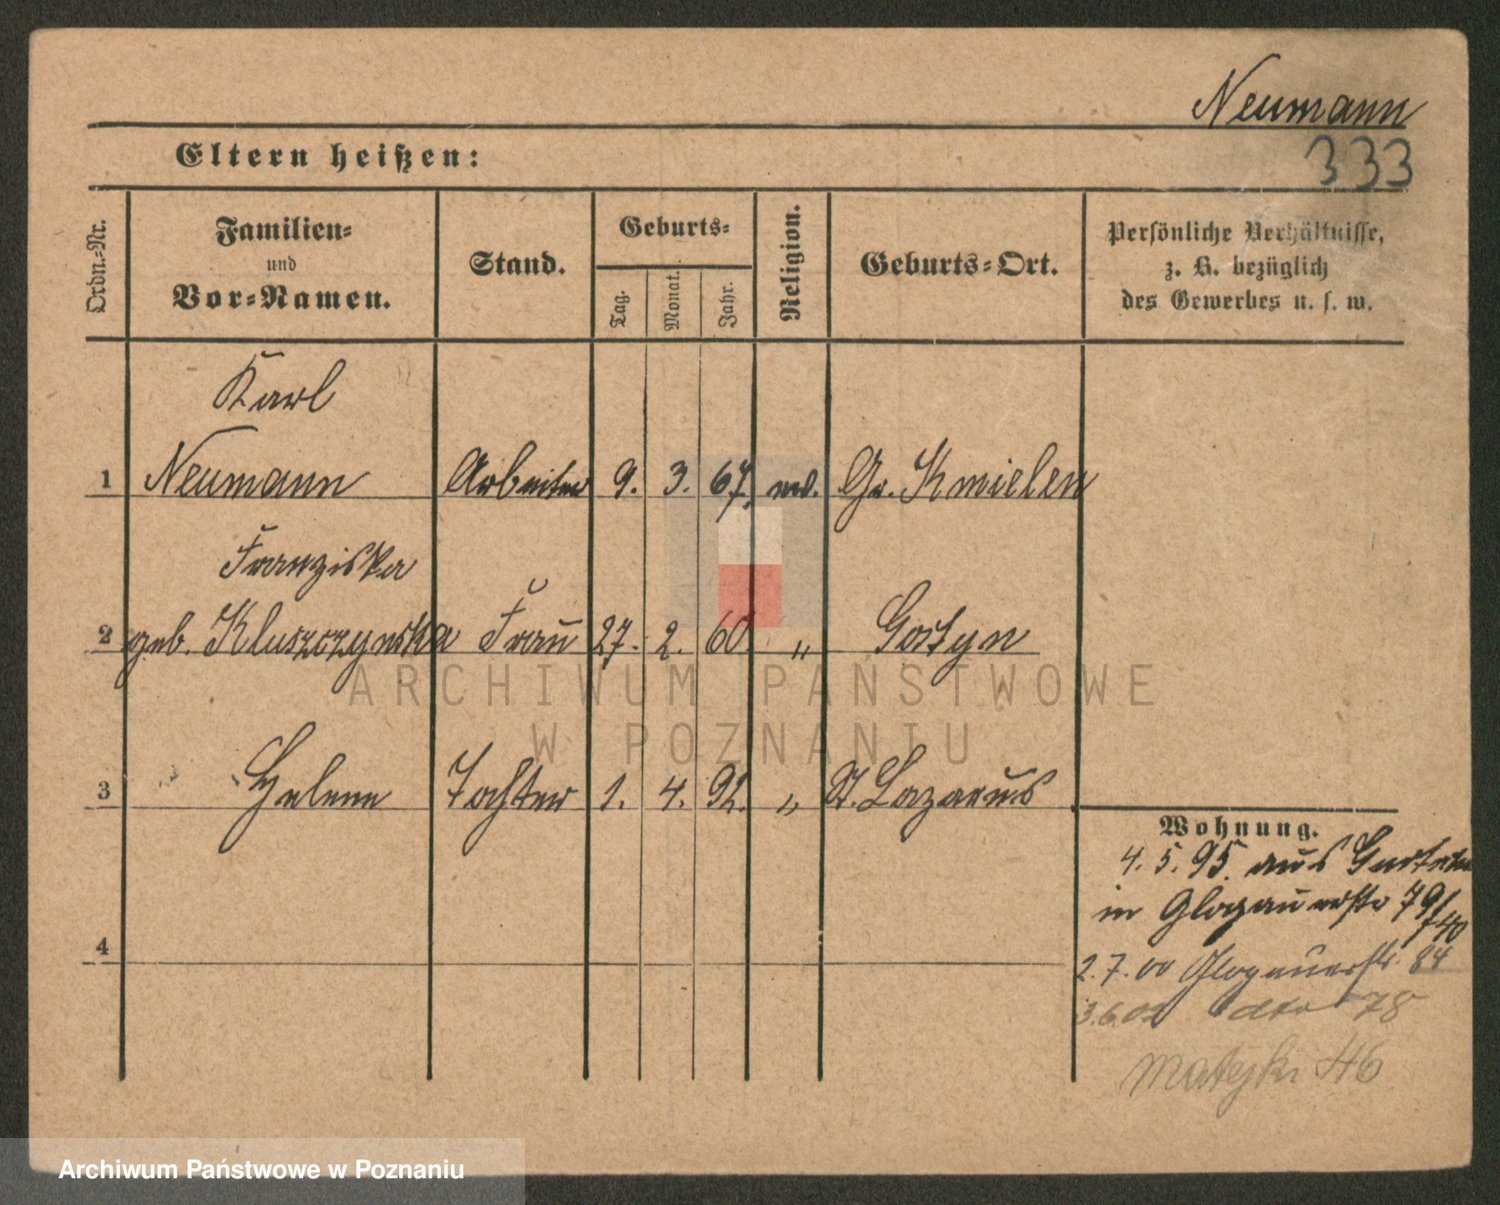 Neumann
333
Eltern heißen:
Ordn.-Nr.
Familien-
und
Vor-Namen.
Stand.
Geburts-
Tag.
Monat.
Jahr.
Religion.
Geburts-Ort.
Persönliche Verhältnisse,
z. B. bezüglich
des Gewerbes u. s. w.
Karl
1 Neumann Arbeiter 9. 3. 67. Gr. Kmielen
Franziska
2 geb. Kluszczynska Frau 27. 2. 60 " Gostyn
3 Helene Tochter 1. 4. 92. " St. Lazarus
Wohnung.
4. 5. 95. aus
in Glogauerstr 79/40
4
2. 7. 00 Glogauerstr. 84
3.6.02 dto 78
Matejki 46
ARCHIWUM PAŃSTWOWE
W POZNANIU
Archiwum Państwowe w Poznaniu